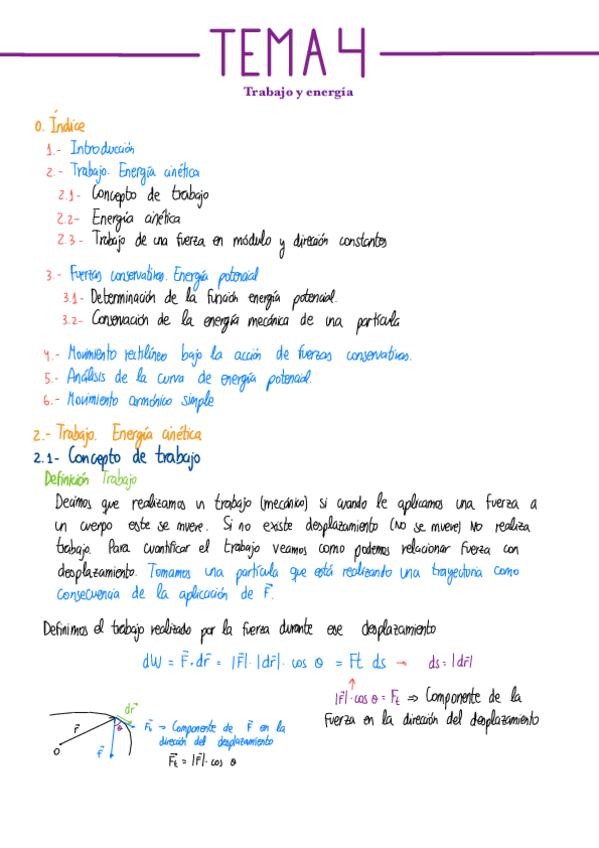 TEMA 4
Trabajo y energía
0. Índice
1.- Introducción
2.- Trabajo. Energía cinética
2.1- Concepto de trabajo
2.2- Energía cinética
2.3- Trabajo de una fuerza en módulo y dirección constantes
3.- Fuerzas conservativas. Energía potencial
3.1- Determinación de la función energía potencial.
3.2- Conservación de la energía mecánica de una partícula
4.- Movimiento rectilíneo bajo la acción de fuerzas conservativas.
5.- Análisis de la curva de energía potencial.
6.- Movimiento armónico simple
2.- Trabajo. Energía cinética
2.1- Concepto de trabajo
Definición Trabajo
Decimos que realizamos un trabajo (mecánico) si cuando le aplicamos una fuerza a
un cuerpo este se mueve. Si no existe desplazamiento (no se mueve) NO realiza
trabajo. Para cuantificar el trabajo veamos como podemos relacionar fuerza con
desplazamiento. Tomamos una partícula que está realizando una trayectoria como
consecuencia de la aplicación de F⃗.
Definimos el trabajo realizado por la fuerza durante ese desplazamiento
dW = F⃗ · dr⃗ = |F⃗| · |dr⃗| · cos θ = Ft ds → ds = |dr⃗|
↑
|F⃗| · cos θ = Ft ⇒ Componente de la
fuerza en la dirección del desplazamiento
dr⃗
r⃗
θ
O
F⃗
Ft → Componente de F⃗ en la
dirección del desplazamiento
F⃗t = |F⃗| · cos θ